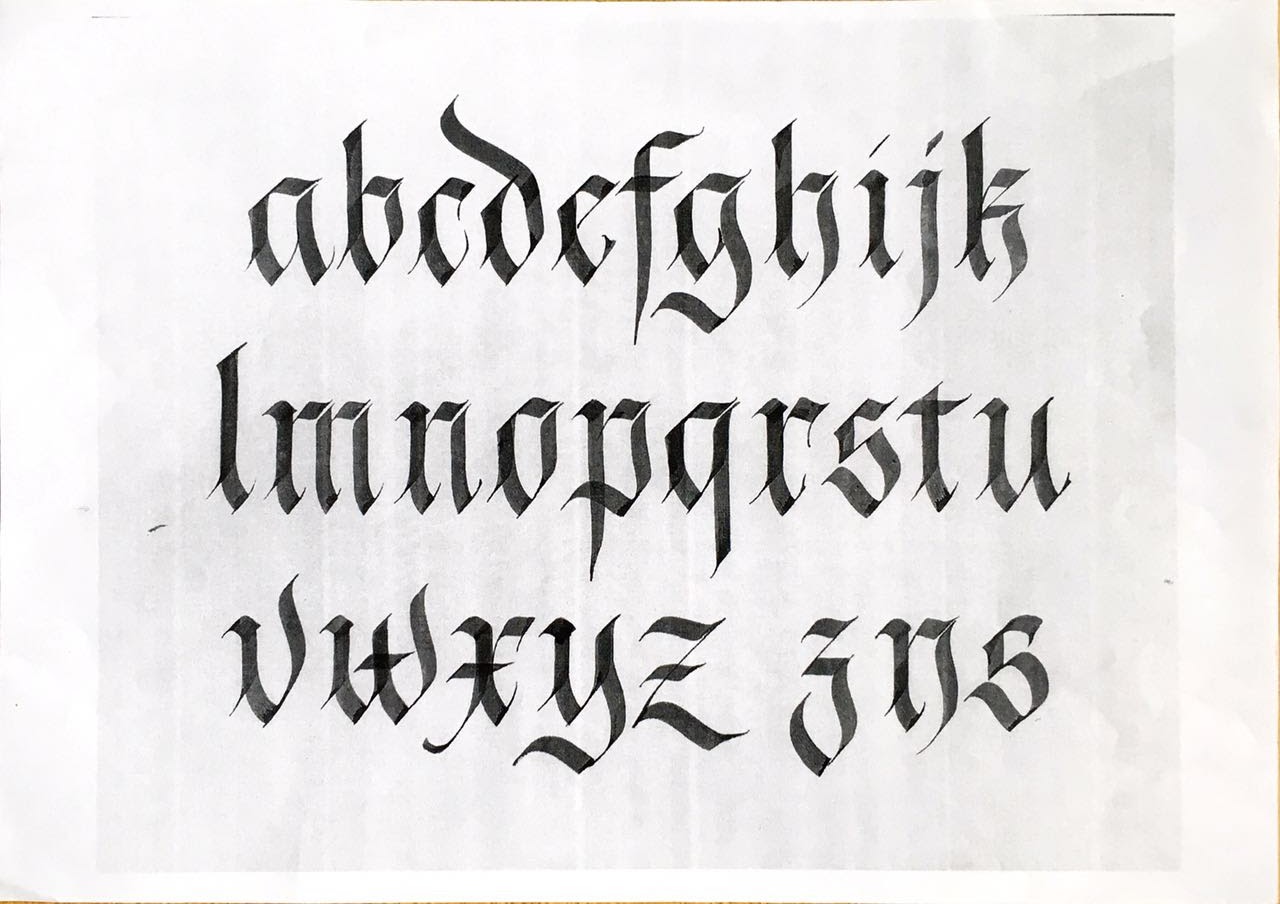 abcdefghijk
lmnopqrstu
vwxyz zns